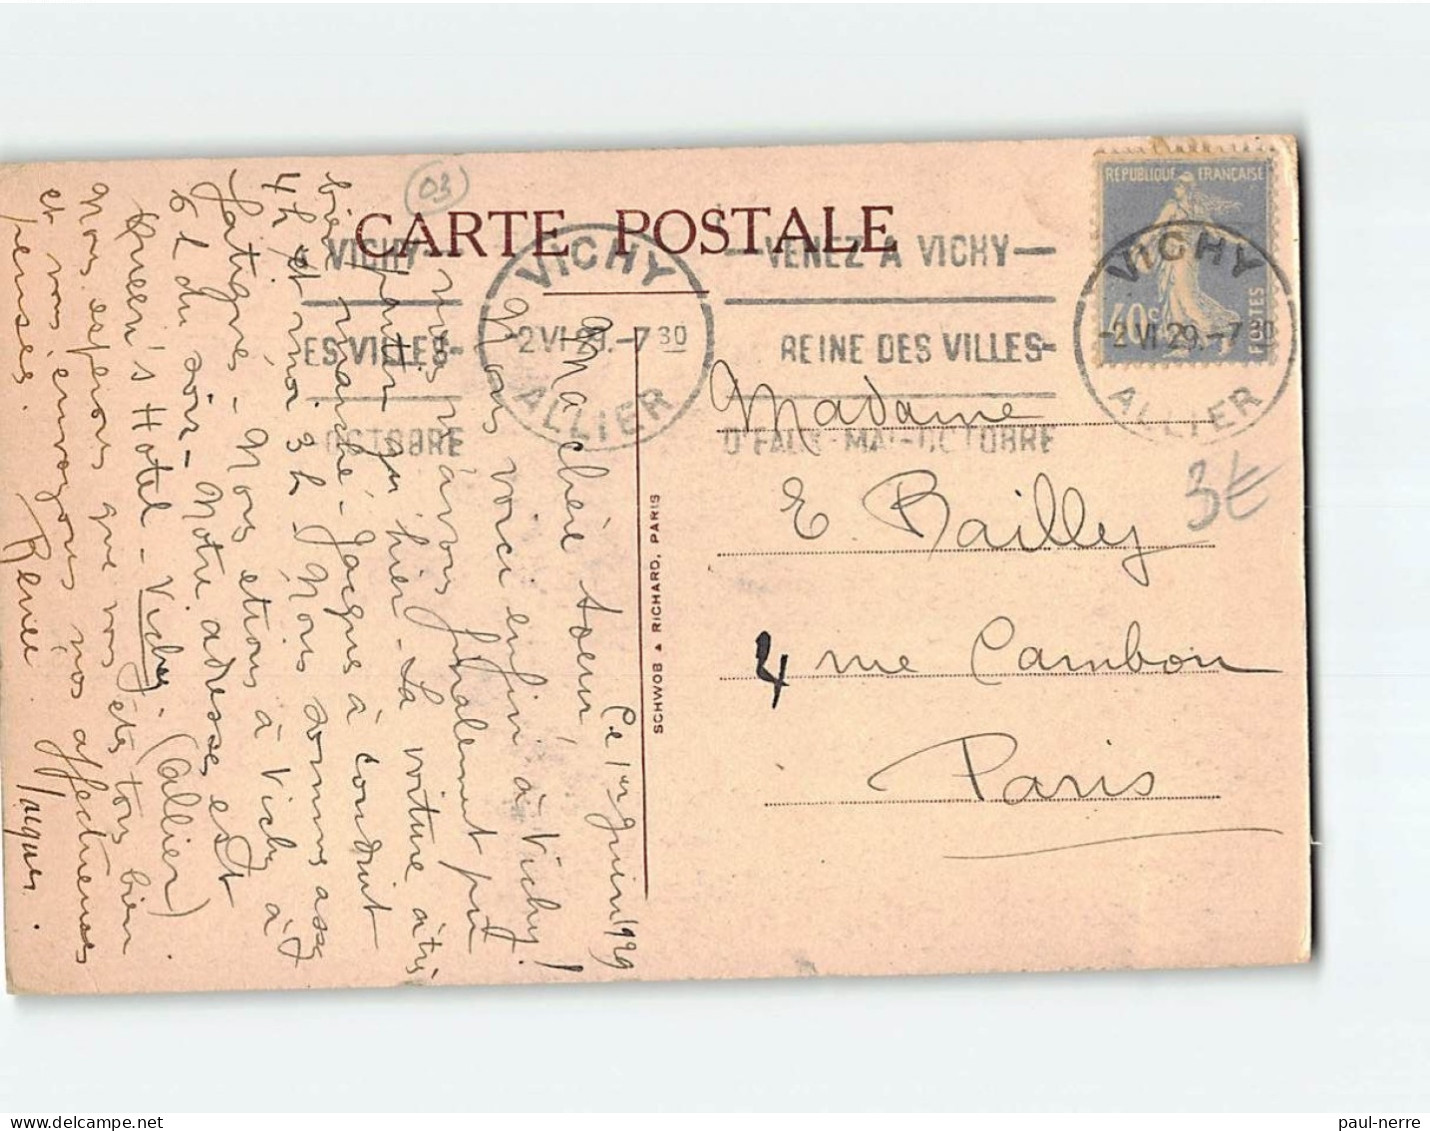 03
CARTE POSTALE
RÉPUBLIQUE FRANÇAISE
40c
POSTES
VICHY
-2 VI 29.-7 30
ALLIER
VICHY-
ES VILLES-
OCTOBRE
VICHY
-2 VI 29.-7 30
ALLIER
—VENEZ A VICHY—
REINE DES VILLES-
D'EAUX-MAI-OCTOBRE
3€
Madame
E. Bailly
4 rue Cambon
Paris
SCHWOB & RICHARD, PARIS
Ce 1er Juin 1929
Ma chère soeur,
Nous voici enfin à Vichy!
nous n'avons finalement pu
partir qu'hier - La voiture a très
bien marché - Jacques a conduit
4h et moi 3h - Nous sommes assez
fatigués - Nous étions à Vichy à 7
6h du soir - Notre adresse est
Queen's Hotel - Vichy (Allier).
Nous espérons que vous êtes tous bien
et vous envoyons nos affectueuses
pensées. Renée. Jacques.
paul-nerre